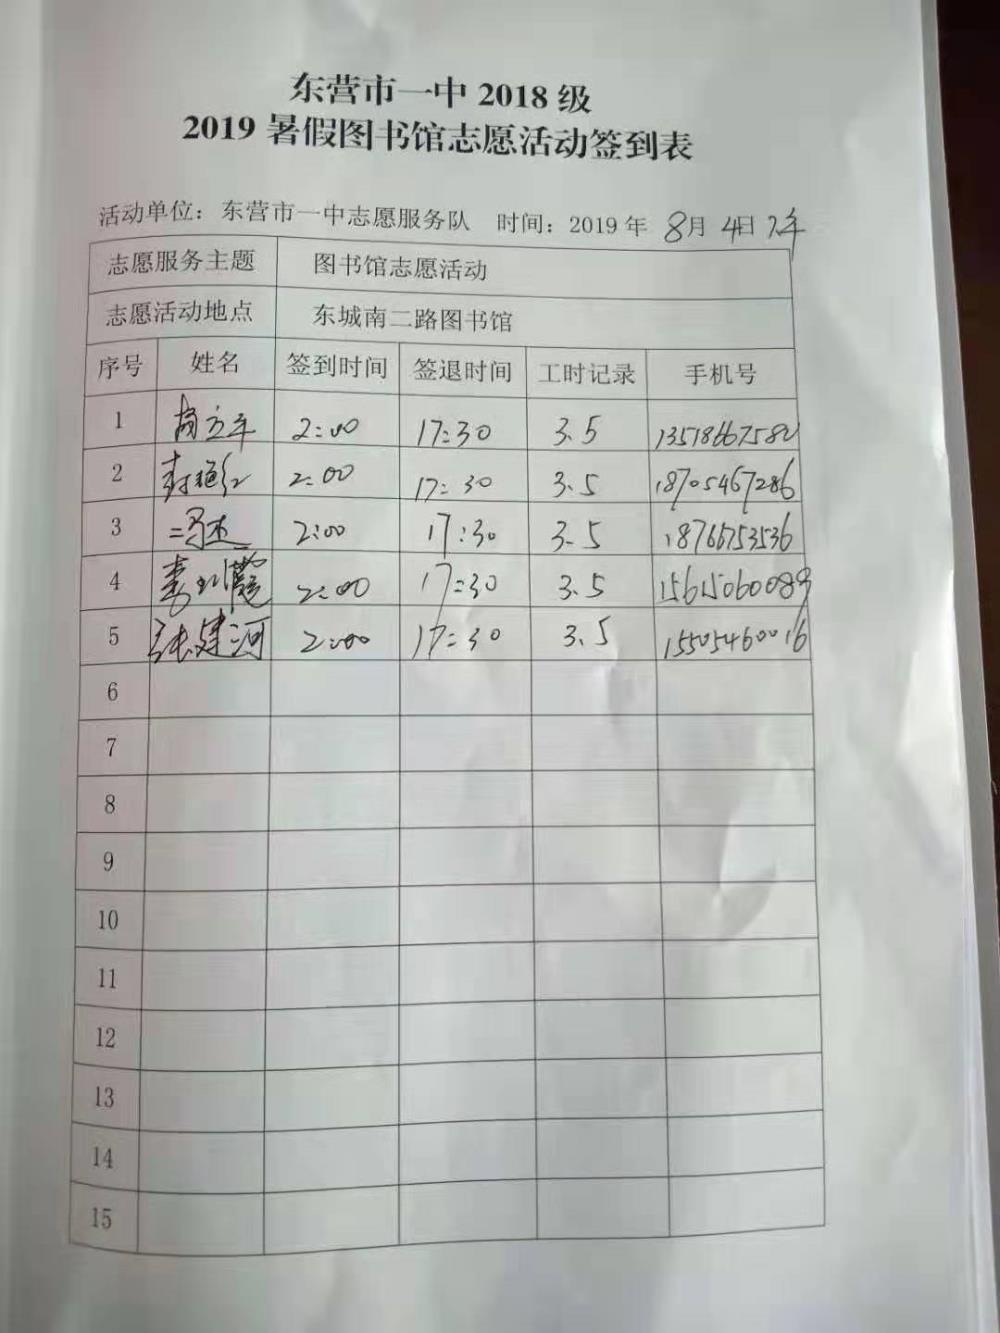 东营市一中 2018 级
2019 暑假图书馆志愿活动签到表
活动单位：东营市一中志愿服务队 时间：2019 年 8月 4日 下午
志愿服务主题 图书馆志愿活动
志愿活动地点 东城南二路图书馆
序号 姓名 签到时间 签退时间 工时记录 手机号
1 2:00 17:30 3.5
2 2:00 17:30 3.5 18705467286
3 2:00 17:30 3.5
4 2:00 17:30 3.5 15615060089
5 张建河 2:00 17:30 3.5 15505460016
6
7
8
9
10
11
12
13
14
15